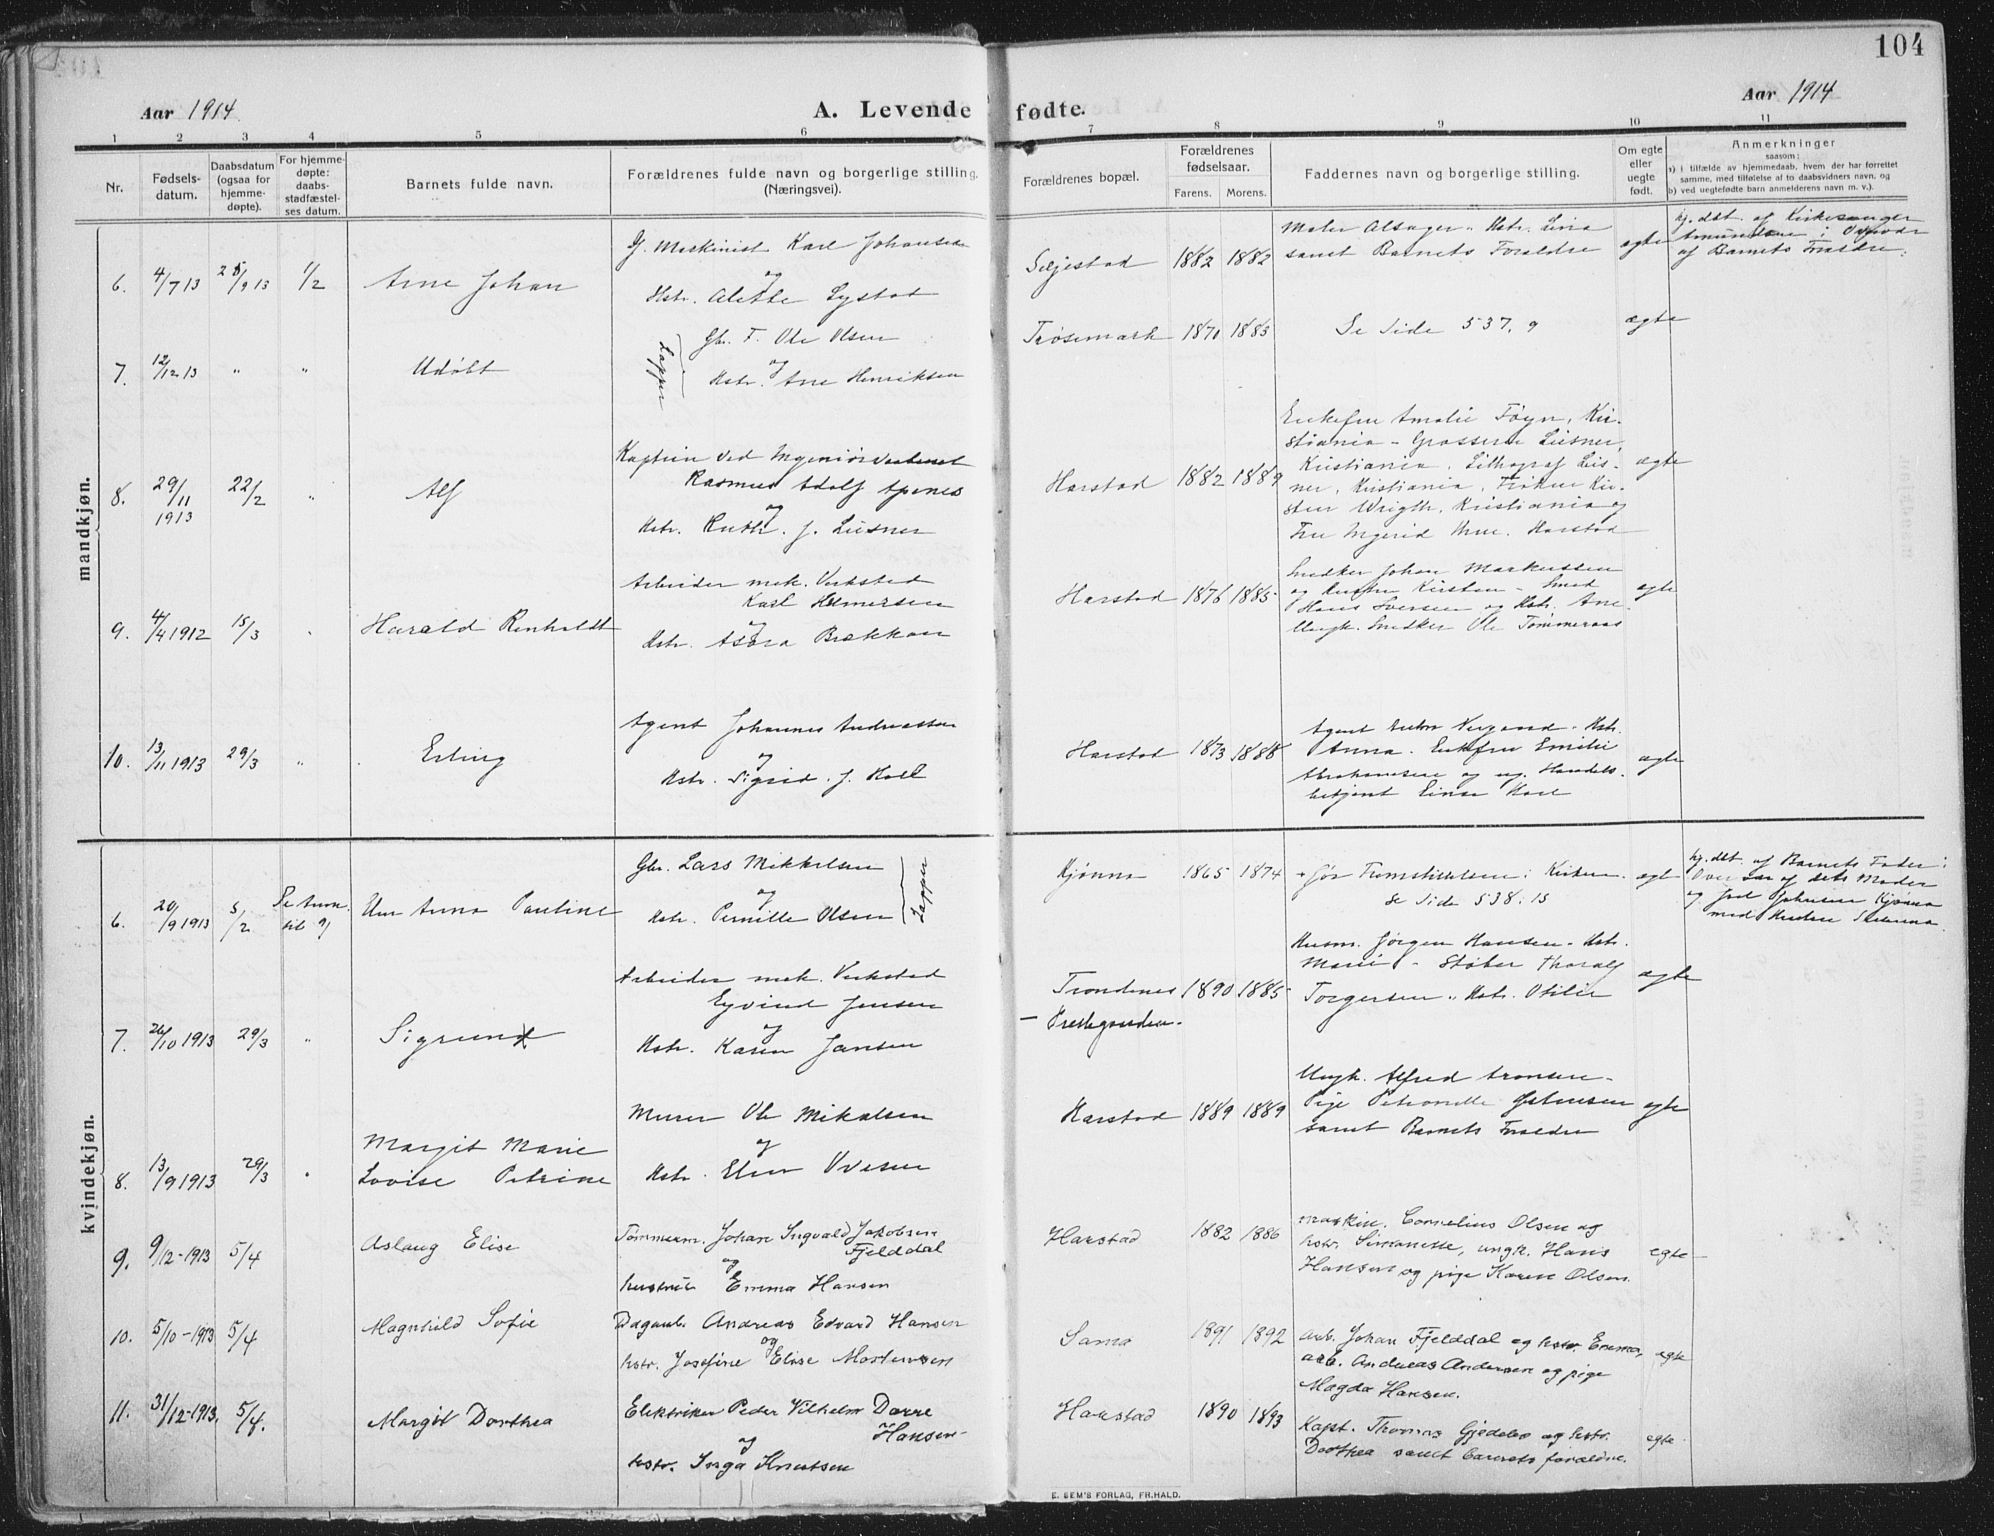 104
Aar 1914
A. Levende fødte.
Aar 1914
1 2 3 4 5 6 7 8 9 10 11
Nr.
Fødsels-
datum.
Daabsdatum
(ogsaa for
hjemme-
døpte).
For hjemme-
døpte:
daabs-
stadfæstel-
ses datum.
Barnets fulde navn.
Forældrenes fulde navn og borgerlige stilling.
(Næringsvei).
Forældrenes bopæl.
Forældrenes
fødselsaar.
Farens. Morens.
Faddernes navn og borgerlige stilling.
Om egte
eller
uegte
født.
Anmerkninger
saasom:
a) i tilfælde av hjemmedaab, hvem der har forrettet
samme, med tilføielse af to daabsvidners navn, og
b) ved uegtefødte barn anmelderens navn m. v.).
mandkjøn.
6. 4/7 13 25/9 13 1/2 Arne Johan
G. Maskinist Karl Johansen
og
Hstr. Alette Lystad
Seljestad 1882 1882
Maler Alsager - Hstr. Lina
samt Barnets Forældre
egte
hj. dbt. af Kirkesanger
Amundsen i
af Barnets Forældre.
7. 12/12 13 " " Udøbt
Gbr. F. Ole Olsen
og
Hstr. Ane Henriksen
Lapper
Trøsemark 1871 1883
Se Side 537, 9
ægte
8. 29/11 1913 22/2 " Alf
Kaptein ved Ingeniørvæbenet
Rasmus Adolf Apenes
og
Hstr. Ruth. J. Lusner
Harstad 1882 1889
Enkefru Amalie Føyn, Kri-
stiania - Grosserer Lusner,
Kristiania, Lithograf Lus-
ner, Kristiania, Frøken Kir-
sten Wrigth, Kristiania og
Fru Ingerid Harstad
ægte
9. 4/4 1912 15/3 " Harald Renholdt
Arbeider mek. Verkstad
Karl Helmersen
og
Hstr. Asora Brækkan
Harstad 1876 1885
Snedker Johan Markussen
og Hustru Kirsten - Smed
Hans Iversen og Hstr. Ane.
Ungk. Snedker Ole Tømmeraas
egte
10. 13/11 1913 29/3 " Erling
Agent Johannes Andreassen
og
Hstr. Sigrid. J. Hall
Harstad 1873 1888
Agent Anton Vegand - Hstr.
Anna. Enkefru Emilie
Abrahamsen og ug. Handels-
betjent Einar Hall
egte
kvindekjøn.
6. 20/9 1913 5/2 Se Anm. til 9) Unn Anna Pauline
Gbr. Lars Mikkelsen
og
Hstr. Pernille Olsen
Lapper
Kjønna 1865 1874
+ før Fremstillelsen i Kirken.
Se Side 538. 15
egte
hj. dbt. af Barnets Fader i
Overvær af dets Moder
og Johnsen Kjønna
med Hustru
7. 26/10 1913 29/3 " Sigrund
Arbeider mek. Verkstad
Eyvind Jensen
og
Hstr. Karen Jansen
Trondenes
- Prestegaarden.
1890 1885
Husm. Jørgen Hansen - Hstr.
Marie - Støber Thoralf
Torgersen " Hstr. Otilie
ægte
8. 13/9 1913 29/3 " Margit Marie
Lovise Petrine
Murer Ole Mikalsen
og
Hstr. Elen Ovesen
Harstad 1889 1889
Ungk. Alfred Aronsen -
Pige Petronelle Østensen
samt Barnets Forældre
egte
9. 9/12-1913 5/4 Aslaug Elise
Tømmerm. Johan Ingvald Jakobsen
Fjelddal
og
hustru Emma Hansen
Harstad 1882 1886
Maskin. Cornelius Olsen og
hstr. Simonette, ungk. Hans
Hansen og pige Karen Olsen.
egte
10. 5/10-1913 5/4 Magnhild Sofie
Dagarb. Andreas Edvard Hansen
og
hstr. Josefine Elise Mortensen
Sama 1891 1892
arb. Johan Fjelddal og hstr Emma,
arb. Andreas Andersen og pige
Magda Hansen.
egte
11. 31/12-1913. 5/4. Margit Dorthea
Elektriker Peder Vilhelm Dorre
Hansen
og
hstr. Inga Knutsen
Harstad 1890 1893
Kapt. Thomas Gjedebo og hstr.
Dorthea samt barnets forældre.
egte.
E. SEM'S FORLAG, FR.HALD.